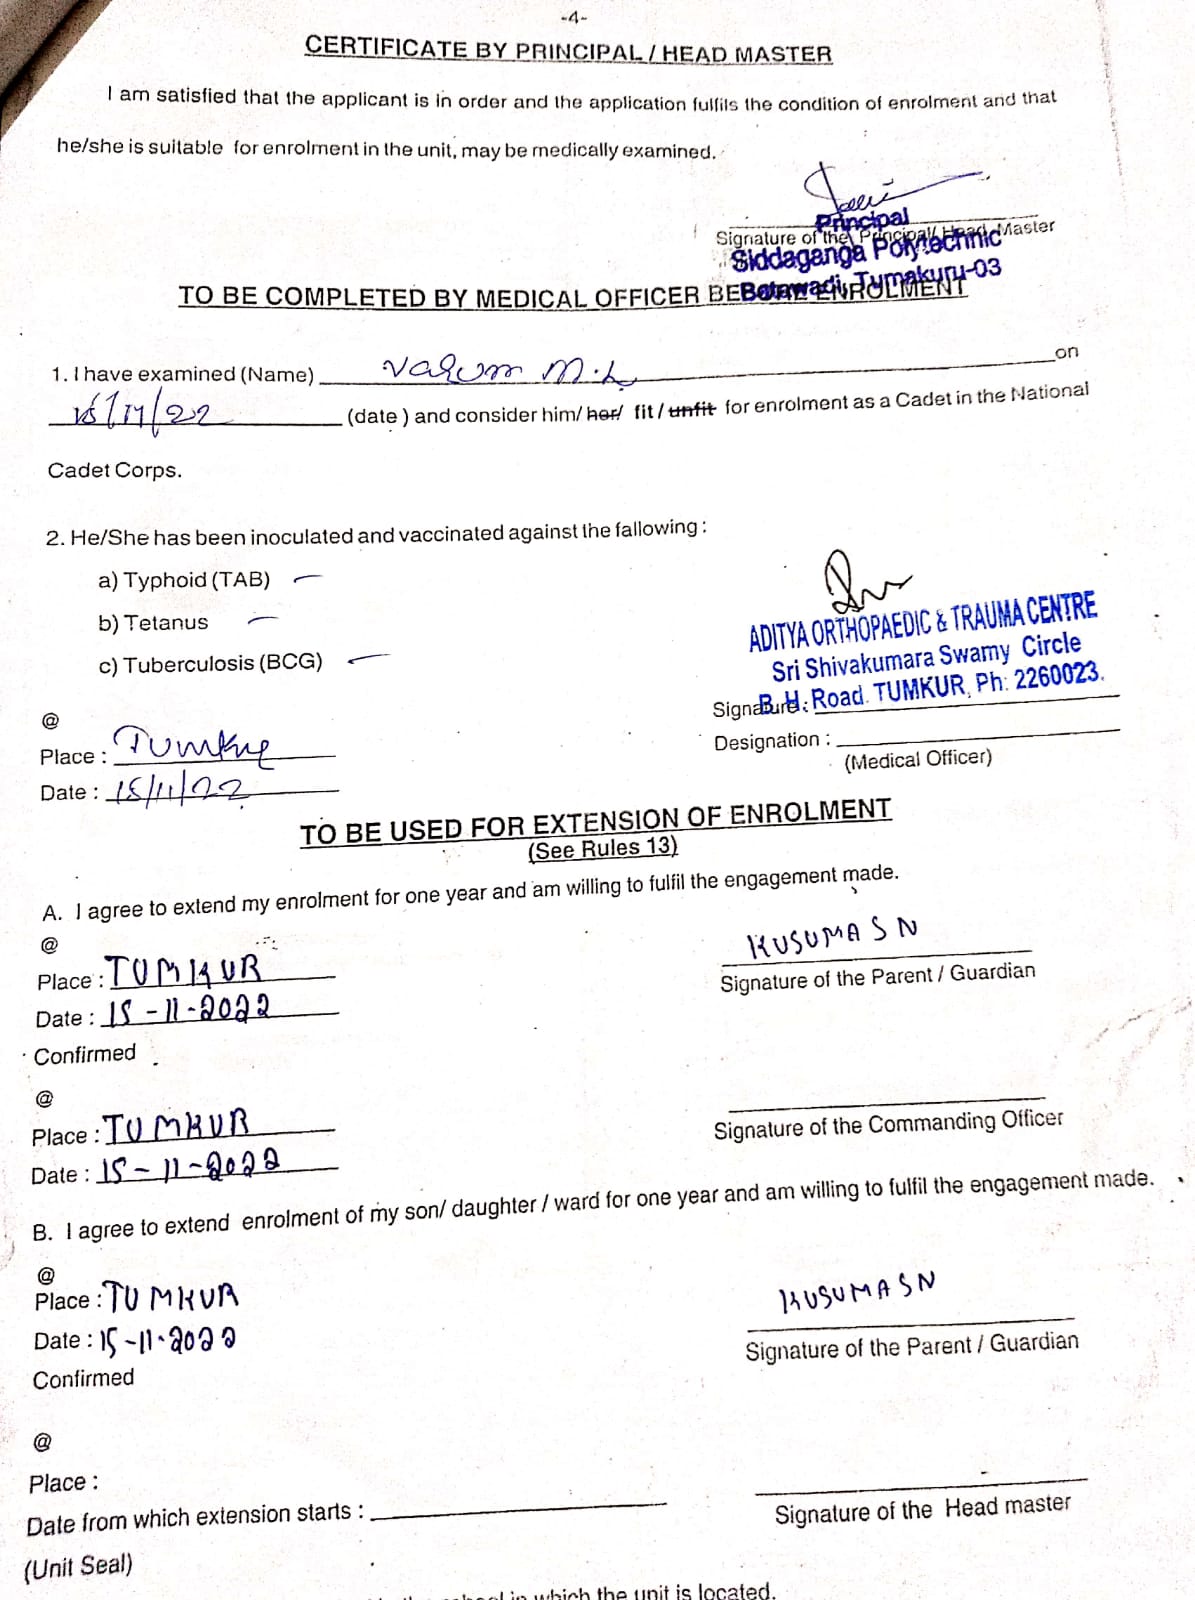 -4-
CERTIFICATE BY PRINCIPAL / HEAD MASTER
I am satisfied that the applicant is in order and the application fulfils the condition of enrolment and that
he/she is suitable for enrolment in the unit, may be medically examined.
Signature of the Principal/ Head Master
Principal
Siddaganga Polytechnic
Botawadi, Tumakuru-03
TO BE COMPLETED BY MEDICAL OFFICER BEFORE ENROLMENT
1. I have examined (Name) Varum M.L on
15/11/22 (date ) and consider him/ her/ fit / unfit for enrolment as a Cadet in the National
Cadet Corps.
2. He/She has been inoculated and vaccinated against the fallowing :
a) Typhoid (TAB) —
b) Tetanus —
c) Tuberculosis (BCG) —
ADITYA ORTHOPAEDIC & TRAUMA CENTRE
Sri Shivakumara Swamy Circle
B. H. Road. TUMKUR, Ph: 2260023.
@
Signature :
Place : Tumkur
Designation :
(Medical Officer)
Date : 15/11/22
TO BE USED FOR EXTENSION OF ENROLMENT
(See Rules 13)
A. I agree to extend my enrolment for one year and am willing to fulfil the engagement made.
@
KUSUMA S N
Place : TUMKUR
Signature of the Parent / Guardian
Date : 15-11-2022
Confirmed
@
Place : TUMKUR
Signature of the Commanding Officer
Date : 15-11-2022
B. I agree to extend enrolment of my son/ daughter / ward for one year and am willing to fulfil the engagement made.
@
Place : TUMKUR
KUSUMA S N
Date : 15-11-2022
Signature of the Parent / Guardian
Confirmed
@
Place :
Date from which extension starts :
Signature of the Head master
(Unit Seal)
in which the unit is located.